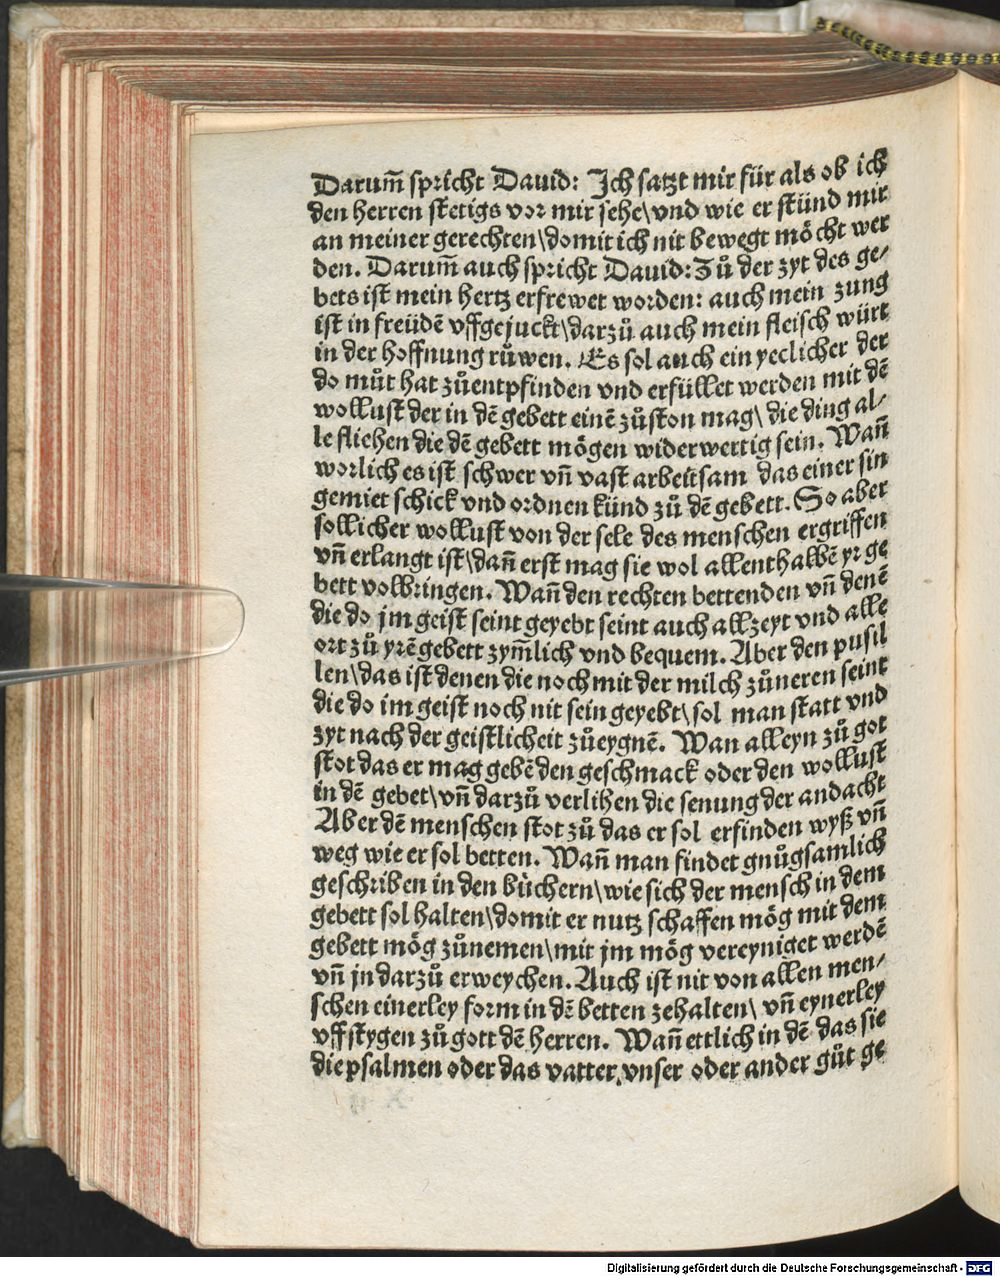 Darum̃ spricht Dauid: Ich satzt mir für als ob ich
den herren stetigs vor mir sehe\vnd wie er stünd mir
an meiner gerechten\domit ich nit bewegt möcht wer
den. Darum̃ auch spricht Dauid: Zů der zyt des ge⸗
bets ist mein hertz erfrewet worden: auch mein zung
ist in freüdẽ vffgejuckt\darzů auch mein fleisch würt
in der hoffnung růwen. Es sol auch ein yeclicher der
do můt hat zůentpfinden vnd erfüllet werden mit dẽ
wollust der in dẽ gebett einẽ zůston mag\ die ding al⸗
le fliehen die dẽ gebett mögen widerwertig sein. Wañ
worlich es ist schwer vñ vast arbeitsam das einer sin
gemiet schick vnd ordnen künd zů dẽ gebett. So aber
sollicher wollust von der sele des menschen ergriffen
vñ erlangt ist\dañ erst mag sie wol allenthalbẽ yr ge
bett volbringen. Wañ den rechten bettenden vñ denẽ
die do jm geist seint geyebt seint auch allzeyt vnd alle
ort zů yrẽ gebett zym̃lich vnd bequem. Aber den pusil
len\das ist denen die noch mit der milch zůneren seint
die do im geist noch nit sein geyebt\sol man statt vnd
zyt nach der geistlicheit zůeygnẽ. Wan alleyn zů got
stot das er mag gebẽ den geschmack oder den wollust
in dẽ gebet\vñ darzů verlihen die senung der andacht
Aber dẽ menschen stot zů das er sol erfinden wyß vñ
weg wie er sol betten. Wañ man findet gnůgsamlich
geschriben in den bůchern\wie sich der mensch in dem
gebett sol halten\domit er nutz schaffen mög mit dem
gebett mög zůnemen\mit jm mög vereyniget werdẽ
vñ jn darzů erweychen. Auch ist nit von allen men⸗
schen einerley form in dẽ betten zehalten\ vñ eynerley
vff stygen zů gott dẽ herren. Wañ ettlich in dẽ das sie
die psalmen oder das vatter vnser oder ander gůt ge
Digitalisierung gefördert durch die Deutsche Forschungsgemeinschaft - DFG